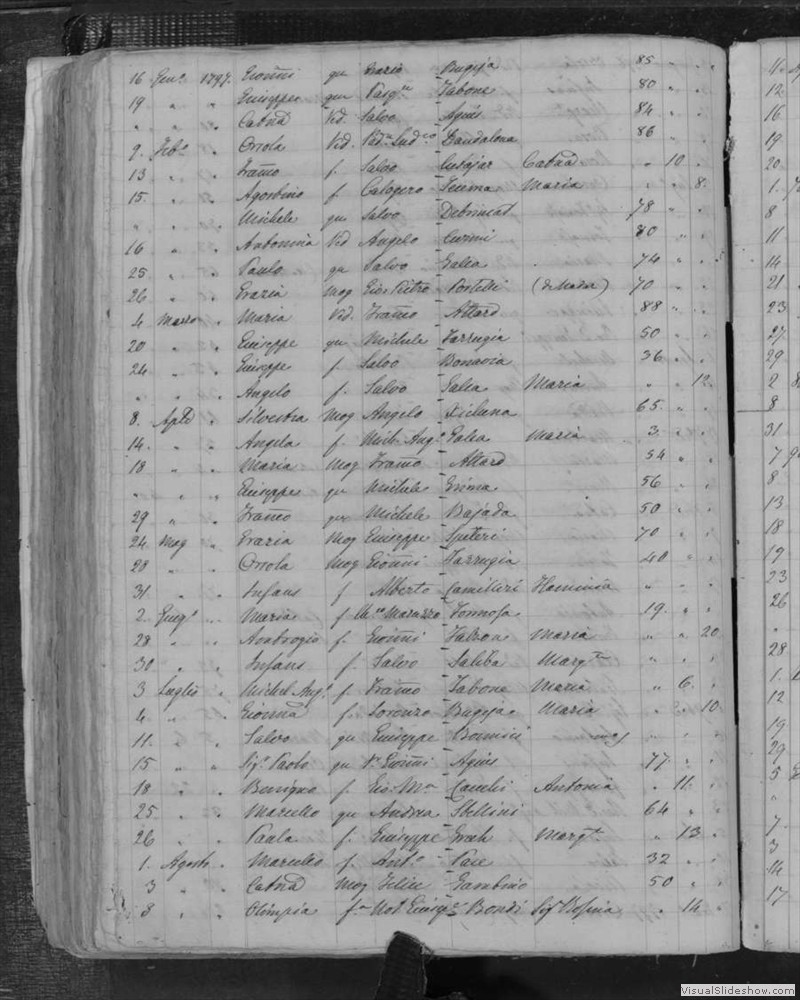 16 Gen.o 1797. Gio͞nni qu Grazio Bugeja 85
19 " " Giuseppe qu Pasq.le Zabone 80
" " Catna Ved. Salvo Agius 84
9. Feb.o " Orsola Ved. Lud.co Dandalona 86
13 " " Franco f. Salvo Cusajar Catna " 10
15. " " Agostino f. Calogero Maria " " 8.
" " Michele qu Salvo Debrincat 78
16 " " Antonina Ved Angelo Curmi 80
25 " " Paulo qu Salvo Galea 74
26 " " Grazia Mog Gio: Pietro Portelli 70
4 Marzo " Maria Ved. Franco Attard 88
20 " " Giuseppe qu Michele Farrugia 50
24. " " Giuseppe f. Salvo Bonavia 36
" " Angelo f. Salvo Galea Maria " " 12.
8. Aple Silvestra Mog Angelo Xicluna 65.
14. " " Angela f. Mich. Ang.o Galea Maria 3.
18 " " Maria Mog Franco Attard 54
" " " Giuseppe qu Michele Grima 56
29 " Franco qu Michele Bajada 50
24. Mag " Grazia Mog Giuseppe Spiteri 70
28 " Orsola Mog Gio͞nni Farrugia 40
31 " Infans f Alberto Camilleri Flaminia
2. Giug.o " Maria f Formosa 19.
28 " " Ambrogio f. Gio͞nni Falzon Maria " " 20
30 " Infans f. Salvo Saliba Marg.ta
3 Luglio " Michel Ang.o f. Franco Zabone Maria " 6.
4 " Gio͞nna f. Lorenzo Bugeja Maria " 10.
11. " Salvo qu Giuseppe
15 " " Sig.r Paolo qu Gio͞nni Agius 77
18 " Benigno f. Gio: M.a Camilli Antonia " 11.
25 " " Marcello qu Andrea Stellini 64
26 " Paula f. Giuseppe Grech Marg.ta " 13
1. Agosto " Marcello f. Ant.o Pace 32
3 " " Catna Mog Felice Gambino 50
8 " " Olimpia Not Giusep.e Bondi Sig.a Rosina " 14.
11
12
16
19
20
1.
8
11
14
21
23
27
29
2
8
31
7
8
13
18
19
23
26
28
1.
12
19
29
5
7
3
14
17
VisualSlideshow.com